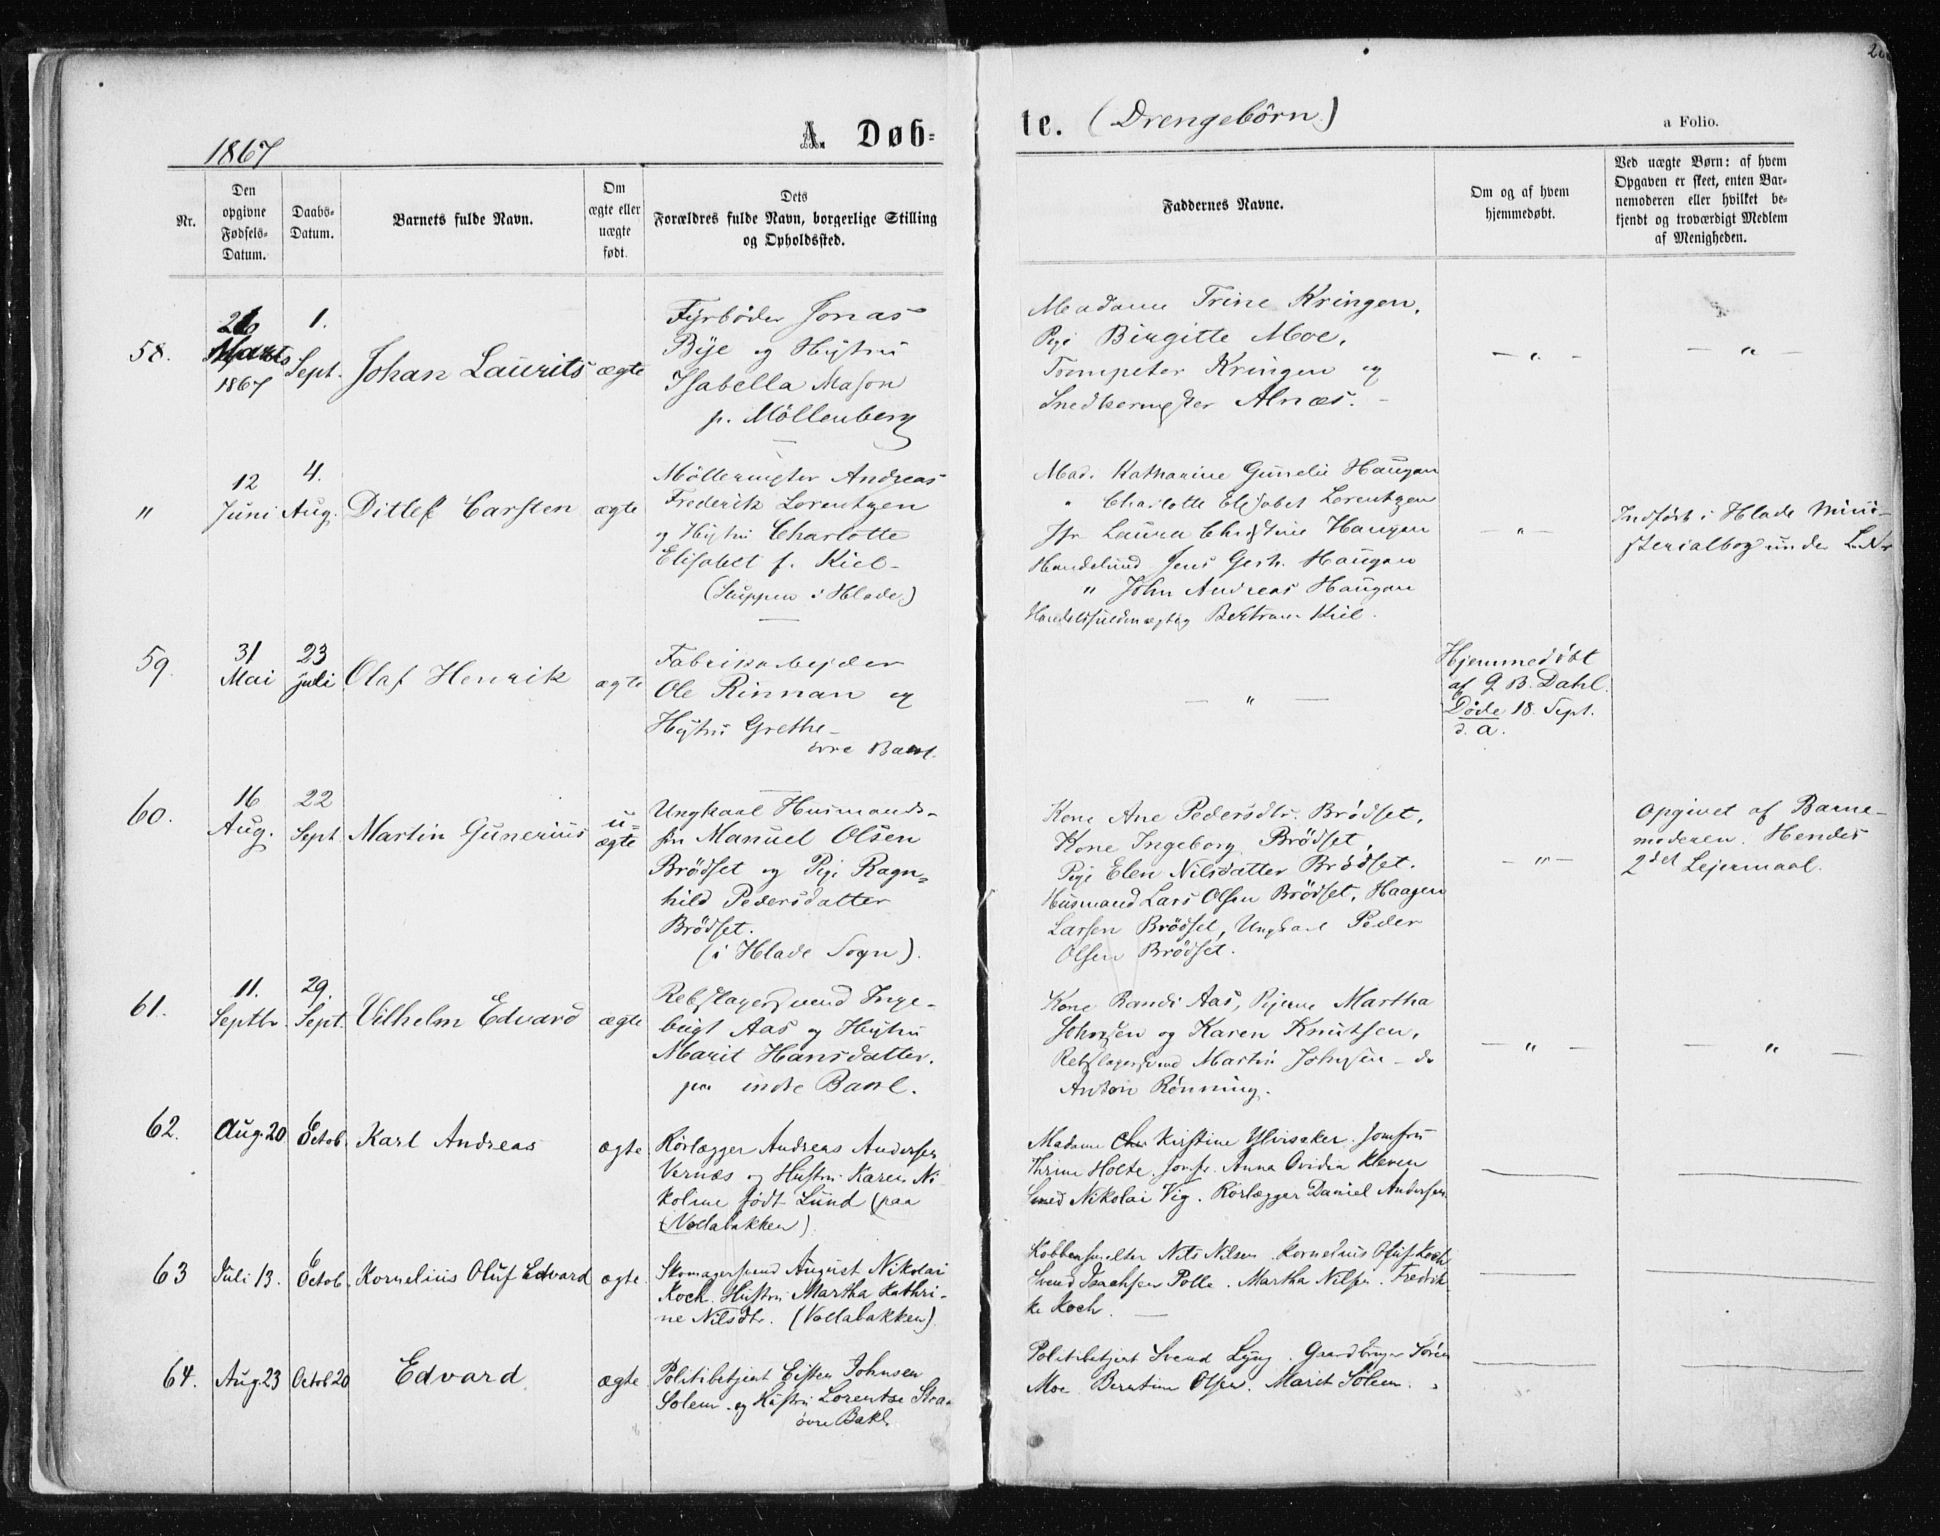 1867
A. Døb=
te. (Drengebörn)
a Folio.
Nr.
Den opgivne Fødsels-Datum.
Daabs-Datum.
Barnets fulde Navn.
Om ægte eller uægte født.
Dets Forældres fulde Navn, borgerlige Stilling og Opholdssted.
Faddernes Navne.
Om og af hvem hjemmedøbt.
Ved uægte Børn: af hvem Opgaven er skeet, enten Barnemoderen eller hvilket bekjendt og troværdigt Medlem af Menigheden.
58.
Marts
1867
1.
Sept.
Johan Laurits
ægte
Fyrböder Jonas
Bye og Hustru
Isabella Mason
p. Möllenberg
Madame Trine Kringen,
Pige Birgitte Moe,
Trompeter Kringen og
Snedkermester Alnæs.
"
12
Juni
4.
Aug.
Ditlef Carsten
ægte
Möllermester Andreas
Frederik Lorentzen
og Hustru Charlotte
Elisabet f. Kiel
(Sluppen i Hlade)
Mad. Katharine Gunelie Haugan
" Charlotte Elisabet Lorentzen
Jfr Laura Christine Haugan
Jens Gerh. Haugan
" John Andreas Haugan
Handelsfuldmægtig Bertram Kiel.
Indfört i Hlade Mini-
sterialbog under L.Nr
59.
31
Mai
23
juli
Olaf Henrik
ægte
Fabrikarbejder
Ole Rinnan og
Hustru Grethe
övre Bakl.
Hjemmedöbt
af G. B. Dahl.
Döde 18. Sept.
d. a.
60.
16
Aug.
22
Sept
Martin Gunerius
u-
ægte
Ungkaal Husmands-
sön Manuel Olsen
Brödset og Pige Ragn=
hild Pedersdatter
Brödset.
(i Hlade Sogn).
Kone Ane Pedersdtr. Brödset,
Kone Ingeborg Brödset,
Pige Elen Nilsdatter Brödset.
Husmand Lars Olsen Brödset, Haagen
Larsen Brödset, Ungkarl Peder
Olsen Brödset.
Opgivet af Barne-
moderen. Hendes
2det Lejermaal.
61.
11.
Septbr.
29.
Sept.
Vilhelm Edvard
ægte
Rebslagersvend Inge-
brigt Aas og Hustru
Marit Hansdatter.
paa indre Bakl.
Kone Randi Aas, Pigerne Martha
Johnsen og Karen Knutsen,
Rebslagersvend Martin Johnsen - do
Anton Rönning.
62.
Aug. 20
6
Octob.
Karl Andreas
ægte
Rörlægger Andreas Andersen
Vernæs og Hustru Karen Ni-
koline födt Lund (paa
(Vollabakken)
Madame Kirstine Ylvisaker. Jomfru
Thrine Holte. Jomfr. Anna Ovidia Kleven
Smed Nikolai Vig. Rörlægger Daniel Andersen.
63
Juli 13.
6
Octob.
Kornelius Oluf Edvard
ægte
Skomagersvend August Nikolai
Koch. Hustru Martha Kathri-
ne Nilsdtr. (Vollabakken)
Kobbersmelter Nils Nilsen. Kornelius Oluf Koch
Svend Isachsen Polle. Martha Nilsen. Fredrik-
ke Koch.
64.
Aug 23
Octob 20
Edvard
ægte
Politibetjent Eisten Johnsen
Solem og Hustru Lorentse
övre Bakl.
Politibetjent Svend Lyng. Gaardbruger Sören
Moe. Berntine Olsen. Marit Solem.